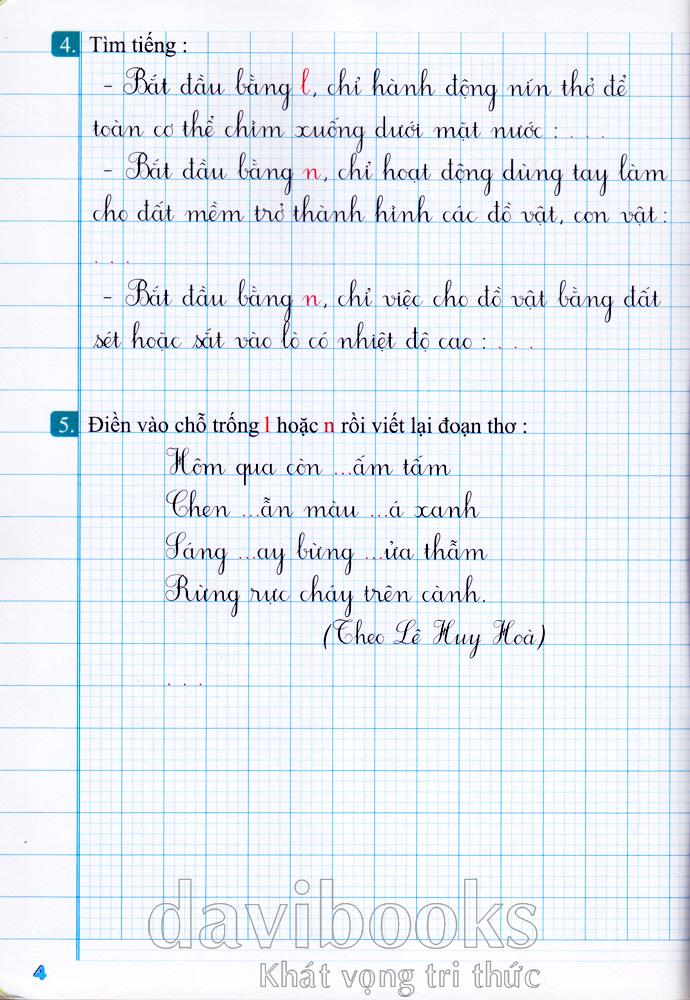 4. Tìm tiếng :
- Bắt đầu bằng l, chỉ hành động nín thở để
toàn cơ thể chìm xuống dưới mặt nước : . . .
- Bắt đầu bằng n, chỉ hoạt động dùng tay làm
cho đất mềm trở thành hình các đồ vật, con vật :
. . .
- Bắt đầu bằng n, chỉ việc cho đồ vật bằng đất
sét hoặc sắt vào lò có nhiệt độ cao : . . .
5. Điền vào chỗ trống l hoặc n rồi viết lại đoạn thơ :
Hôm qua còn ...ấm tấm
Chen ...ẫn màu ...á xanh
Sáng ...ay bừng ...ửa thẫm
Rừng rực cháy trên cành.
(Theo Lê Huy Hoà)
. . .
davibooks
Khát vọng tri thức
4